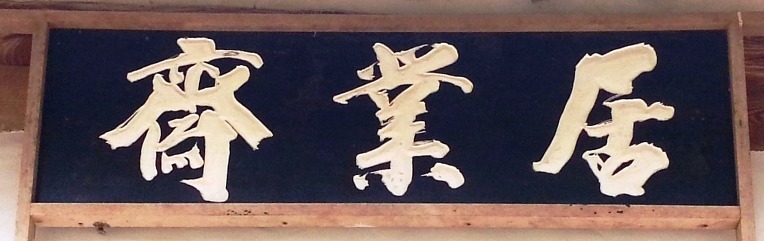 居業齋